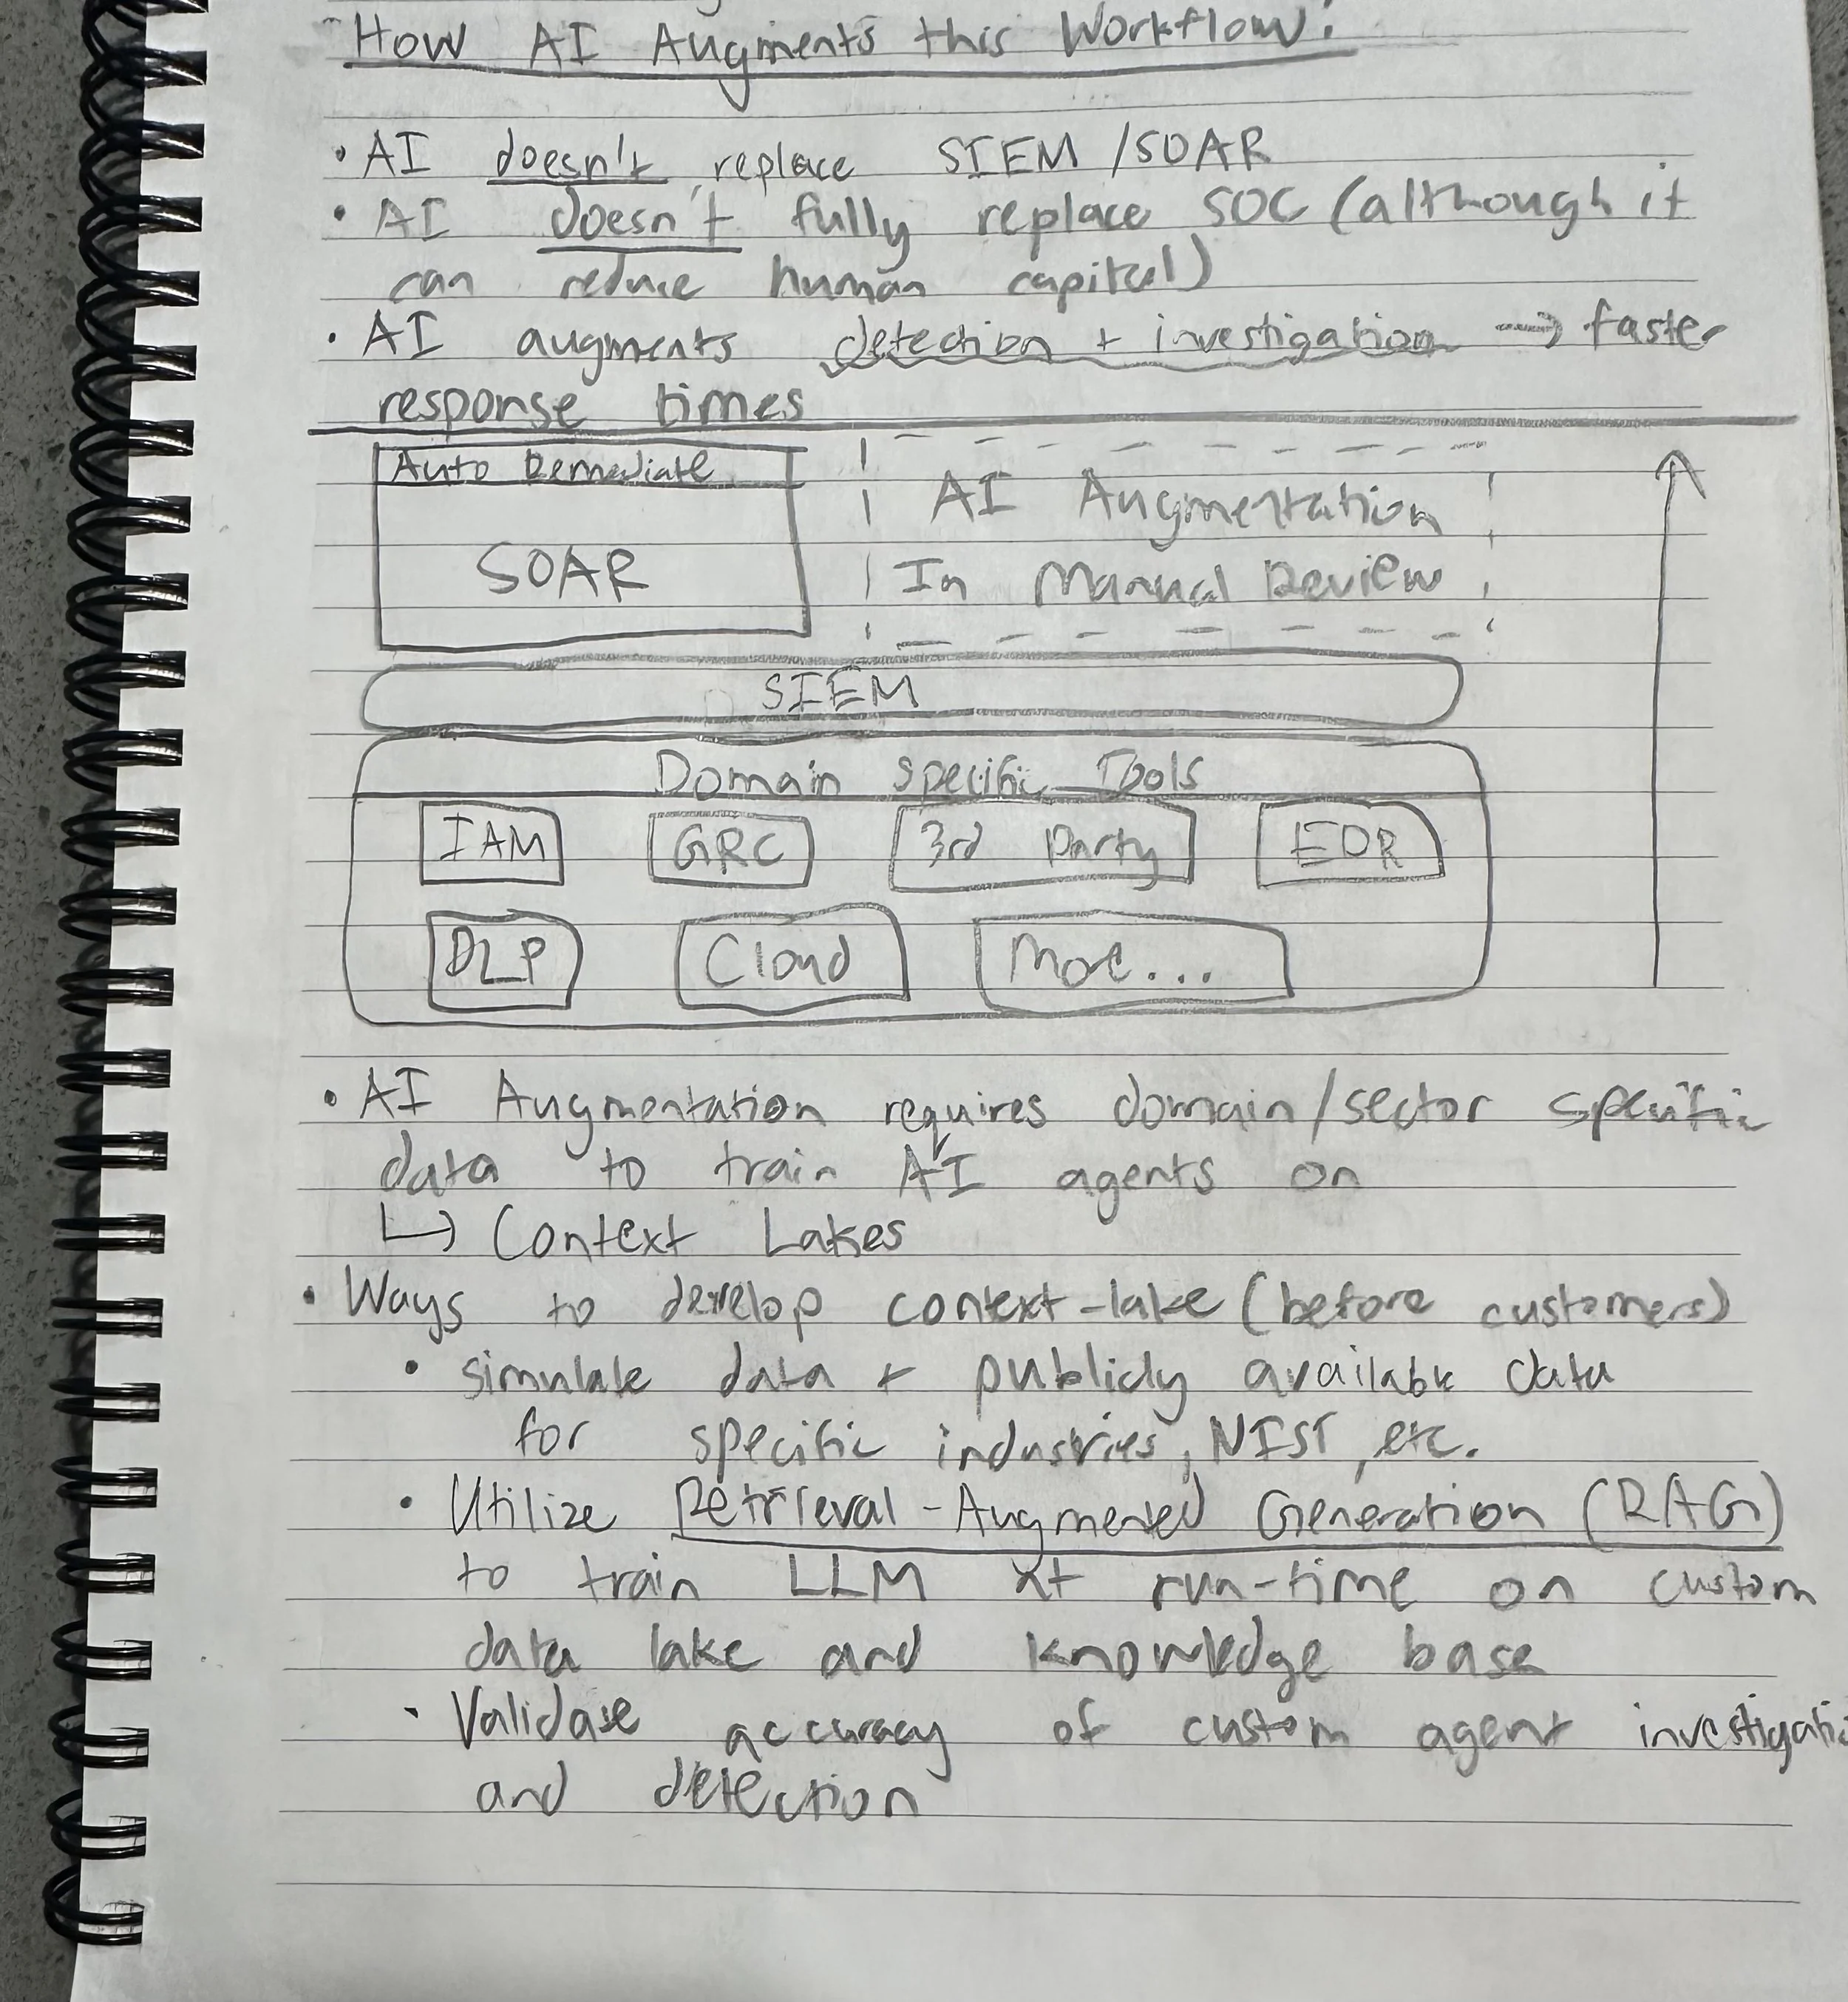 How AI Augments this Workflow:
• AI doesn't replace SIEM/SOAR
• AI doesn't fully replace SOC (although it
can reduce human capital)
• AI augments detection + investigation → faster
response times
Auto Remediate
SOAR
AI Augmentation
In Manual Review
SIEM
Domain Specific Tools
IAM GRC 3rd Party EDR
DLP Cloud More...
• AI Augmentation requires domain/sector specific
data to train AI agents on
↳ Context Lakes
• Ways to develop context-lake (before customers)
• simulate data + publicly available data
for specific industries, NIST, etc.
• Utilize Retrieval-Augmented Generation (RAG)
to train LLM at run-time on custom
data lake and knowledge base
• Validate accuracy of custom agent investigatio
and detection